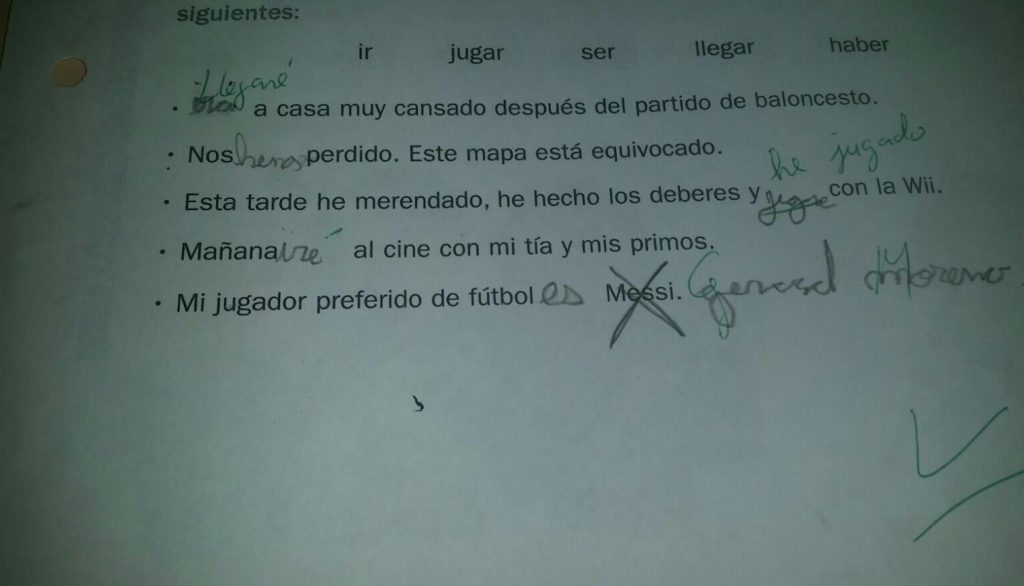 siguientes:
ir jugar ser llegar haber
Llegaré
· a casa muy cansado después del partido de baloncesto.
· Nos hemos perdido. Este mapa está equivocado.
he jugado
· Esta tarde he merendado, he hecho los deberes y jugué con la Wii.
· Mañana iré al cine con mi tía y mis primos.
· Mi jugador preferido de fútbol es Messi. Gerard Moreno